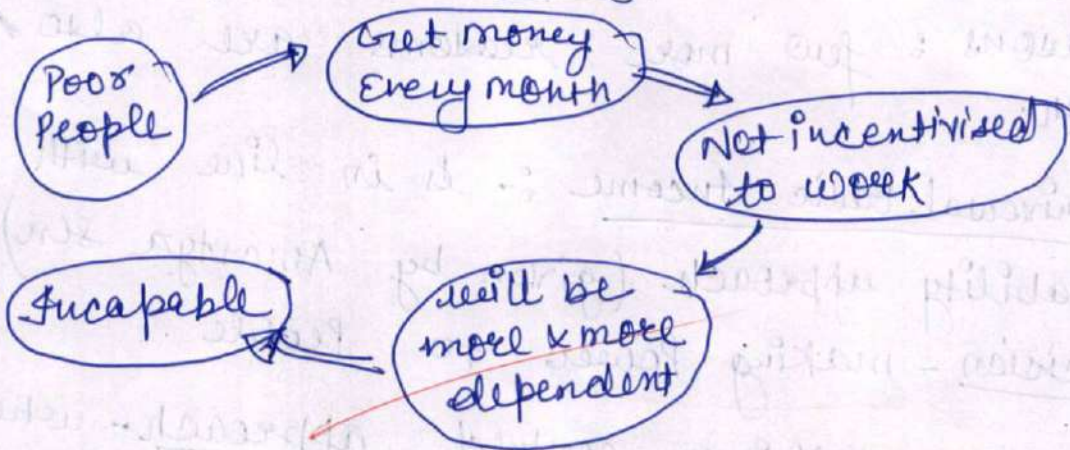 Poor
People
Get money
Every month
Not incentivised
to work
will be
more & more
dependent
Incapable